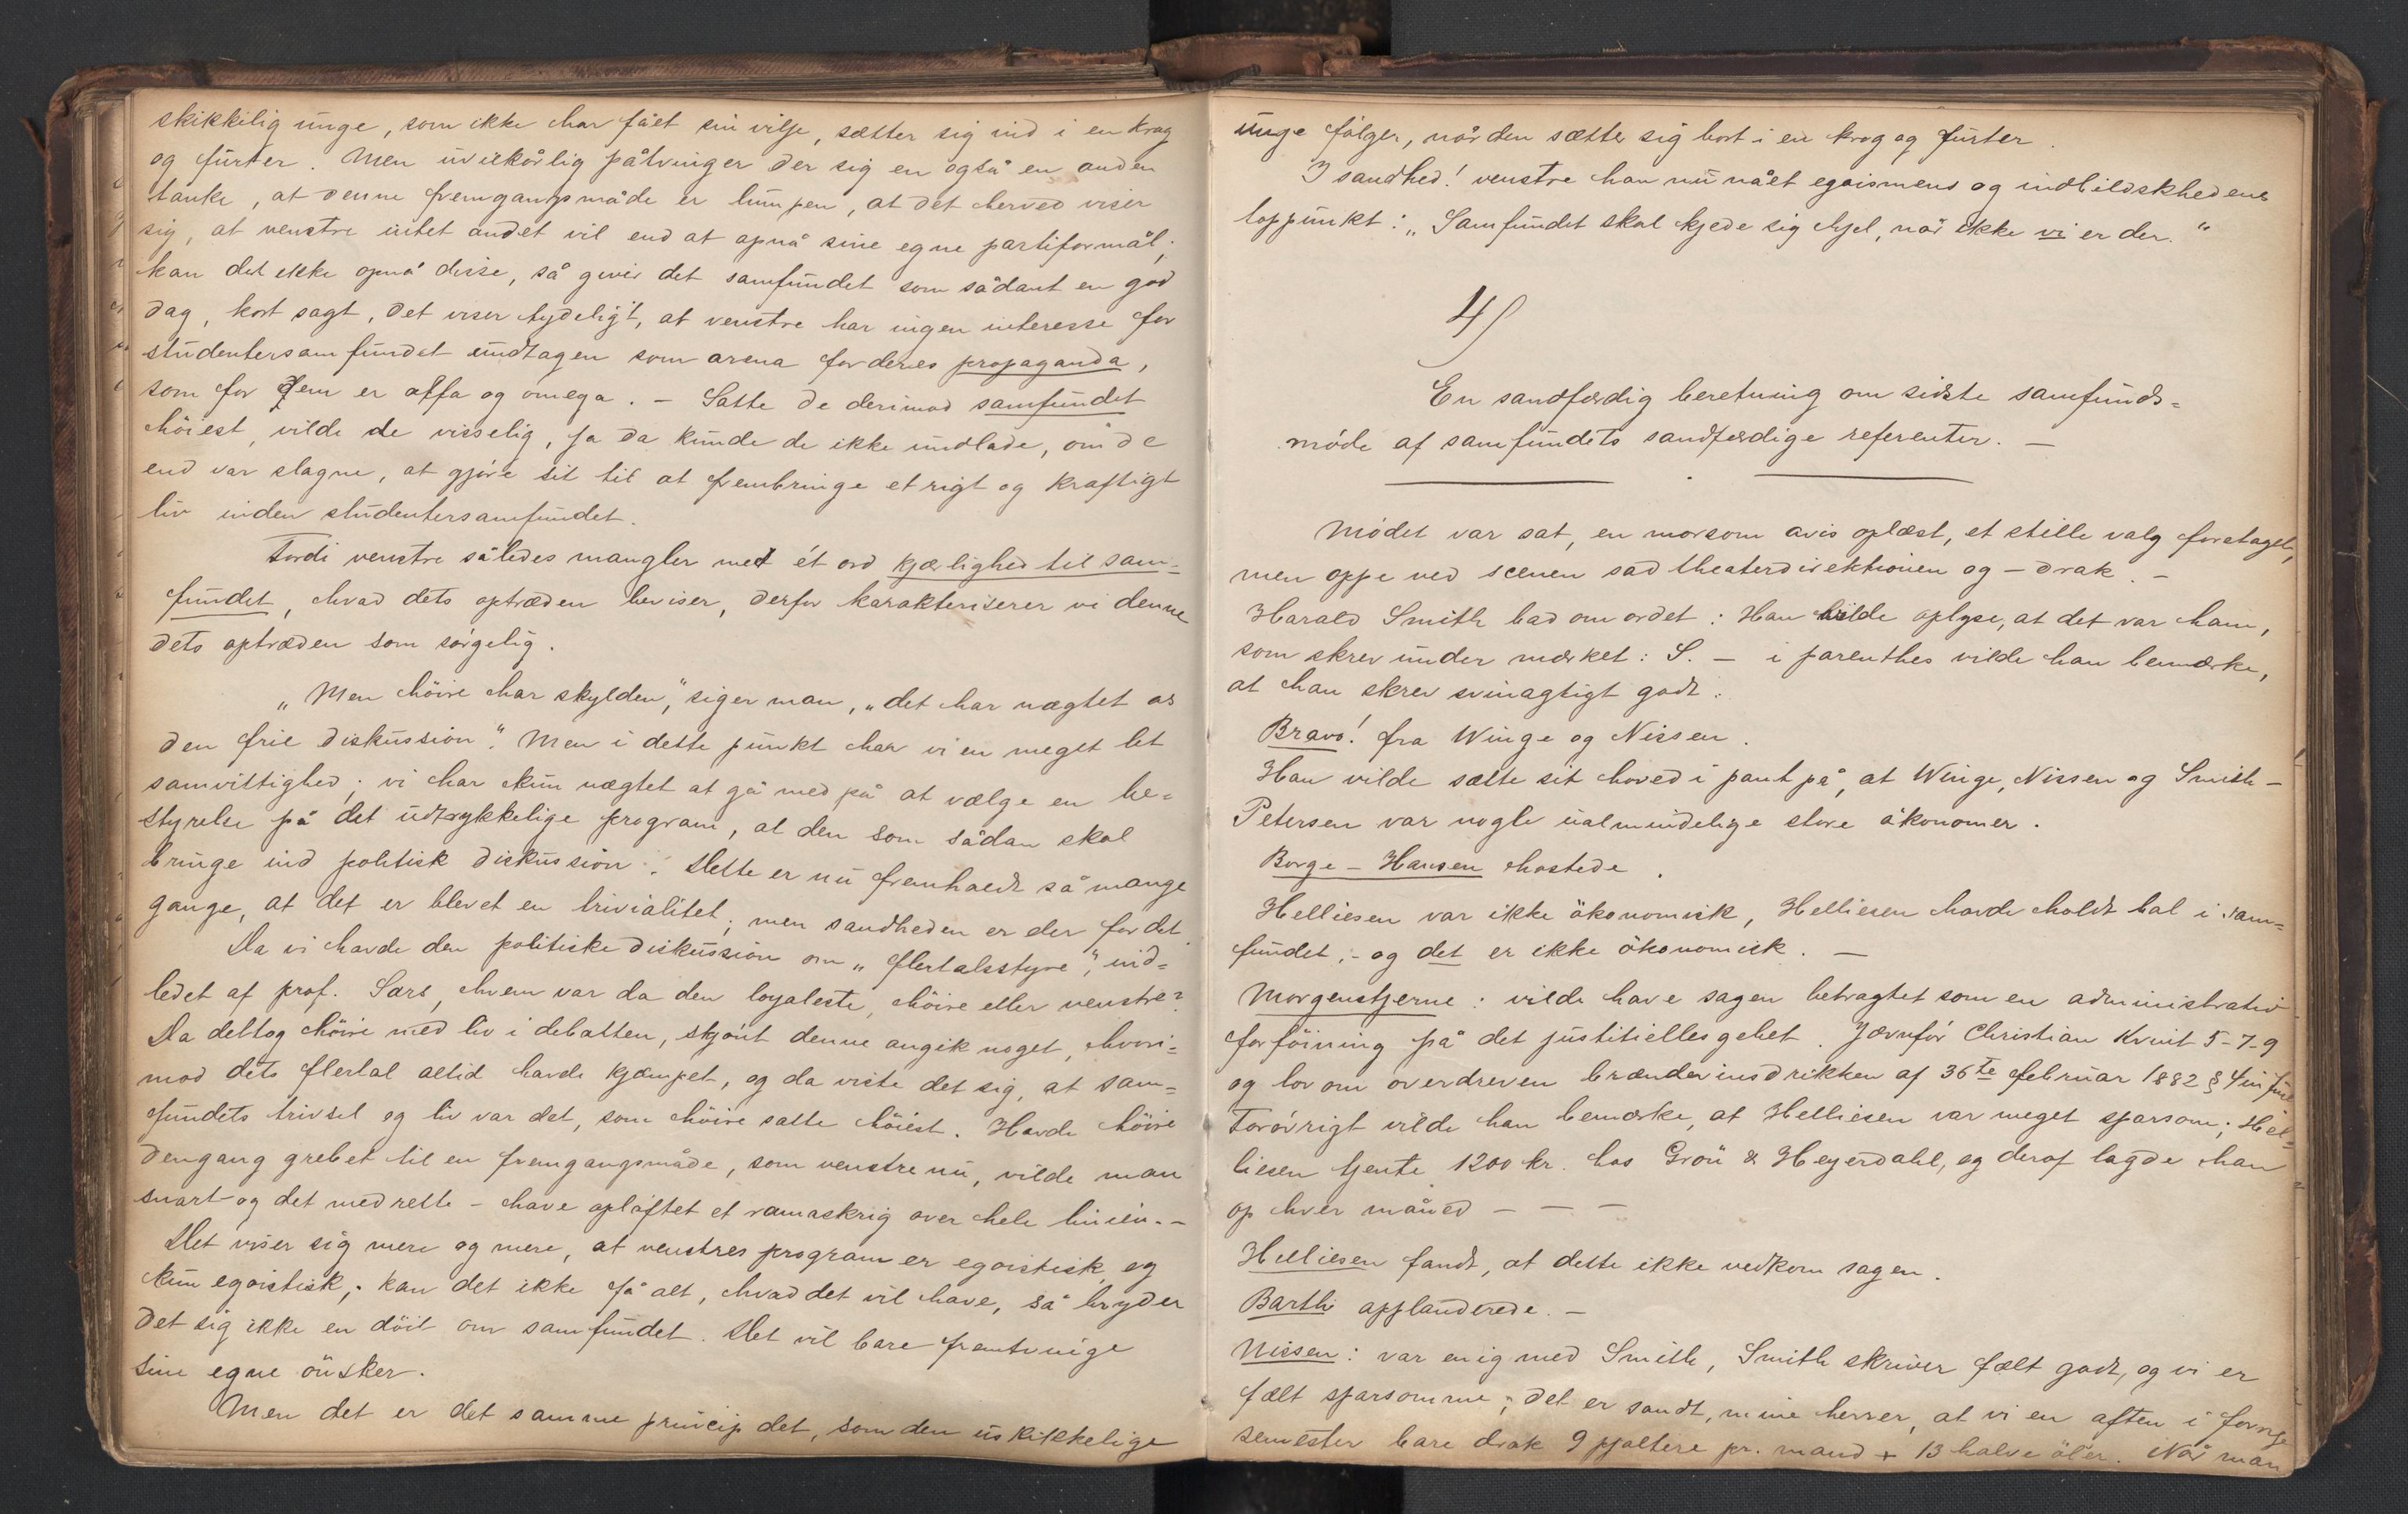 skikkelig unge, som ikke har fået sin vilje, sætter sig ind i en krog
og furter. Men uvilkårlig påtvinger der sig en også en anden
tanke, at denne fremgangsmåde er lumpen, at det herved viser
sig, at venstre intet andet vil end at opnå sine egne partiformål;
kan det ikke opnå disse, så giver det samfundet som sådant en god
dag, kort sagt, det viser tydeligt, at venstre har ingen interesse for
studentersamfundet undtagen som arena for deres propaganda,
som for dem er alfa og omega. – Satte de derimod samfundet
höiest, vilde de visselig, ja da kunde de ikke undlade, om de
end var slagne, at gjöre sit til at frembringe et rigt og kraftigt
liv inden studentersamfundet.
Fordi venstre således mangler med ét ord kjærlighed til sam=
fundet, hvad dets optræden beviser, derfor karakteriserer vi denne
dets optræden som sörgelig.
„Men höire har skylden," siger man, „det har nægtet os
den frie diskussion". Men i dette punkt har vi en meget let
samvittighed; vi har kun nægtet at gå med på at vælge en be=
styrelse på det udtrykkelige program, at den som sådan skal
bringe ind politisk diskussion. Dette er nu fremhævet så mange
gange, at det er blevet en trivialitet; men sandheden er der for det.
Da vi havde den politiske diskussion om „flertalsstyre", ind=
ledet af prof. Sars, hvem var da den loyaleste, höire eller venstre?
Da deltog höire med liv i debatten, skjönt denne angik noget, hvori=
mod dets flertal altid havde kjæmpet, og da viste det sig, at sam=
fundets trivsel og liv var det, som höire satte höiest. Havde höire
dengang grebet til en fremgangsmåde, som venstre nu, vilde man
snart – og det med rette – have oplöftet et ramaskrig over hele linien. –
Det viser sig mere og mere, at venstres program er egoistisk og
kun egoistisk; kan det ikke få alt, hvad det vil have, så bryder
det sig ikke en döit om samfundet. Det vil bare fremtvinge
sine egne önsker.
Men det er det samme princip det, som den uskikkelige
unge fölger, når den sætter sig bort i en krog og furter.
I sandhed! venstre har nu nået egoismens og indbildskhedens
toppunkt: „Samfundet skal kjede sig ihjel, når ikke vi er der."
4)
En sandfærdig beretning om sidste samfunds=
möde af samfundets sandfærdige referenter. –
Mödet var sat, en morsom avis oplæst, et stille valg foretaget,
men oppe ved scenen sad theaterdirektionen og – drak. –
Harald Smith bad om ordet: Han vilde oplyse, at det var ham,
som skrev under mærket: S. – i parenthes vilde han bemærke,
at han skrev svinagtigt godt.
Bravo! fra Winge og Nissen.
Han vilde sætte sit hoved i pant på, at Winge, Nissen og Smith-
Petersen var nogle ualmindelige store ökonomer.
Borge-Hansen hostede.
Helliesen var ikke ökonomisk, Helliesen havde holdt bal i sam=
fundet, – og det er ikke ökonomisk. –
Morgenstjerne: vilde have sagen betragtet som en administrativ
forföining på det justitielles gebet. Jævnför Christian Kvint 5-7-9
og lov om overdreven brændevinsdrikken af 36te februar 1882 § 4 in fine
Forövrigt vilde han bemærke, at Helliesen var meget sparsom; Hel=
liesen tjente 1200 kr. hos Grön & Heyerdahl, og deraf lagde han
op hver måned – – –
Helliesen fandt, at dette ikke vedkom sagen.
Barth applauderede. –
Nissen: var enig med Smith, Smith skriver fælt godt, og vi er
fælt sparsomme; det er sandt, mine herrer, at vi en aften i forrige
semester bare drak 9 pjoltere pr. mand + 13 halve öl'er. Når man